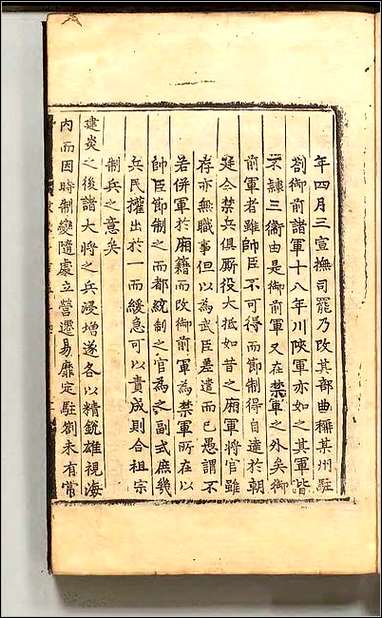 年四月三宣撫司罷乃改其部曲稱某州駐
劄御前諸軍十八年川陜軍亦如之其軍皆
不隷三衙由是御前軍又在禁軍之外矣御
前軍者雖帥臣不可得而節制得自達於朝
廷今禁兵俱厮役大抵如昔之廂軍將官雖
存亦無職事但以為武臣差遣而已愚謂不
若併軍於廂籍而改御前軍為禁軍所在以
帥臣節制之而都統制之官為之副式庶幾
兵民權出於一而緩急可以責成則合祖宗
制兵之意矣
建炎之後諸大將之兵浸增遂各以精銳雄視海
内而因時制變隨處立營遷易靡定駐劉未有常